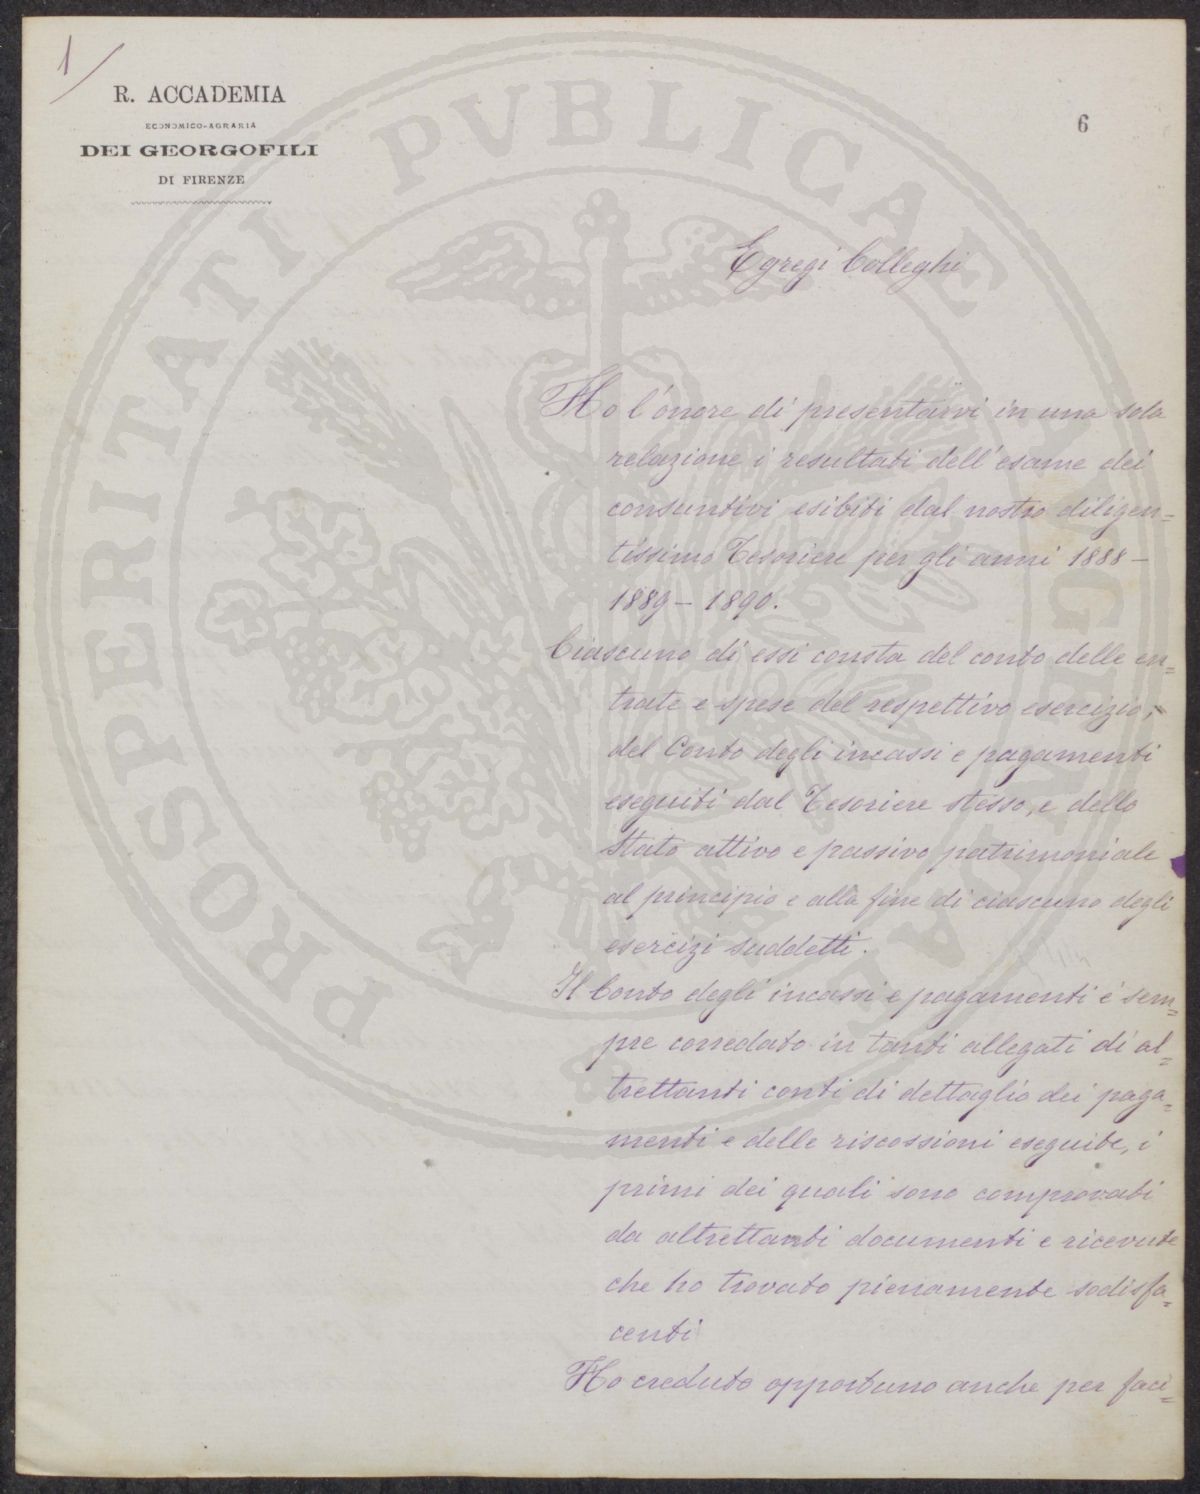 1
R. ACCADEMIA
ECONOMICO-AGRARIA
DEI GEORGOFILI
DI FIRENZE
6
PROSPERITATI PVBLICAE AVGENDAE
Egregi Colleghi
Ho l'onore di presentarvi in una sola
relazione i resultati dell'esame dei
consuntivi esibiti dal nostro diligen=
tissimo Tesoriere per gli anni 1888 –
1889 – 1890.
Ciascuno di essi consta del conto delle en=
trate e spese del respettivo esercizio,=
del Conto degli incassi e pagamenti
eseguiti dal Tesoriere stesso, e dello
Stato attivo e passivo patrimoniale
al principio e alla fine di ciascuno degli
esercizi suddetti.
Il Conto degli incassi e pagamenti è sem=
pre corredato in tanti allegati di al=
trettanti conti di dettaglio dei paga=
menti e delle riscossioni eseguite, i
primi dei quali sono comprovati
da altrettanti documenti e ricevute
che ho trovato pienamente sodisfa=
centi
Ho creduto opportuno anche per faci=